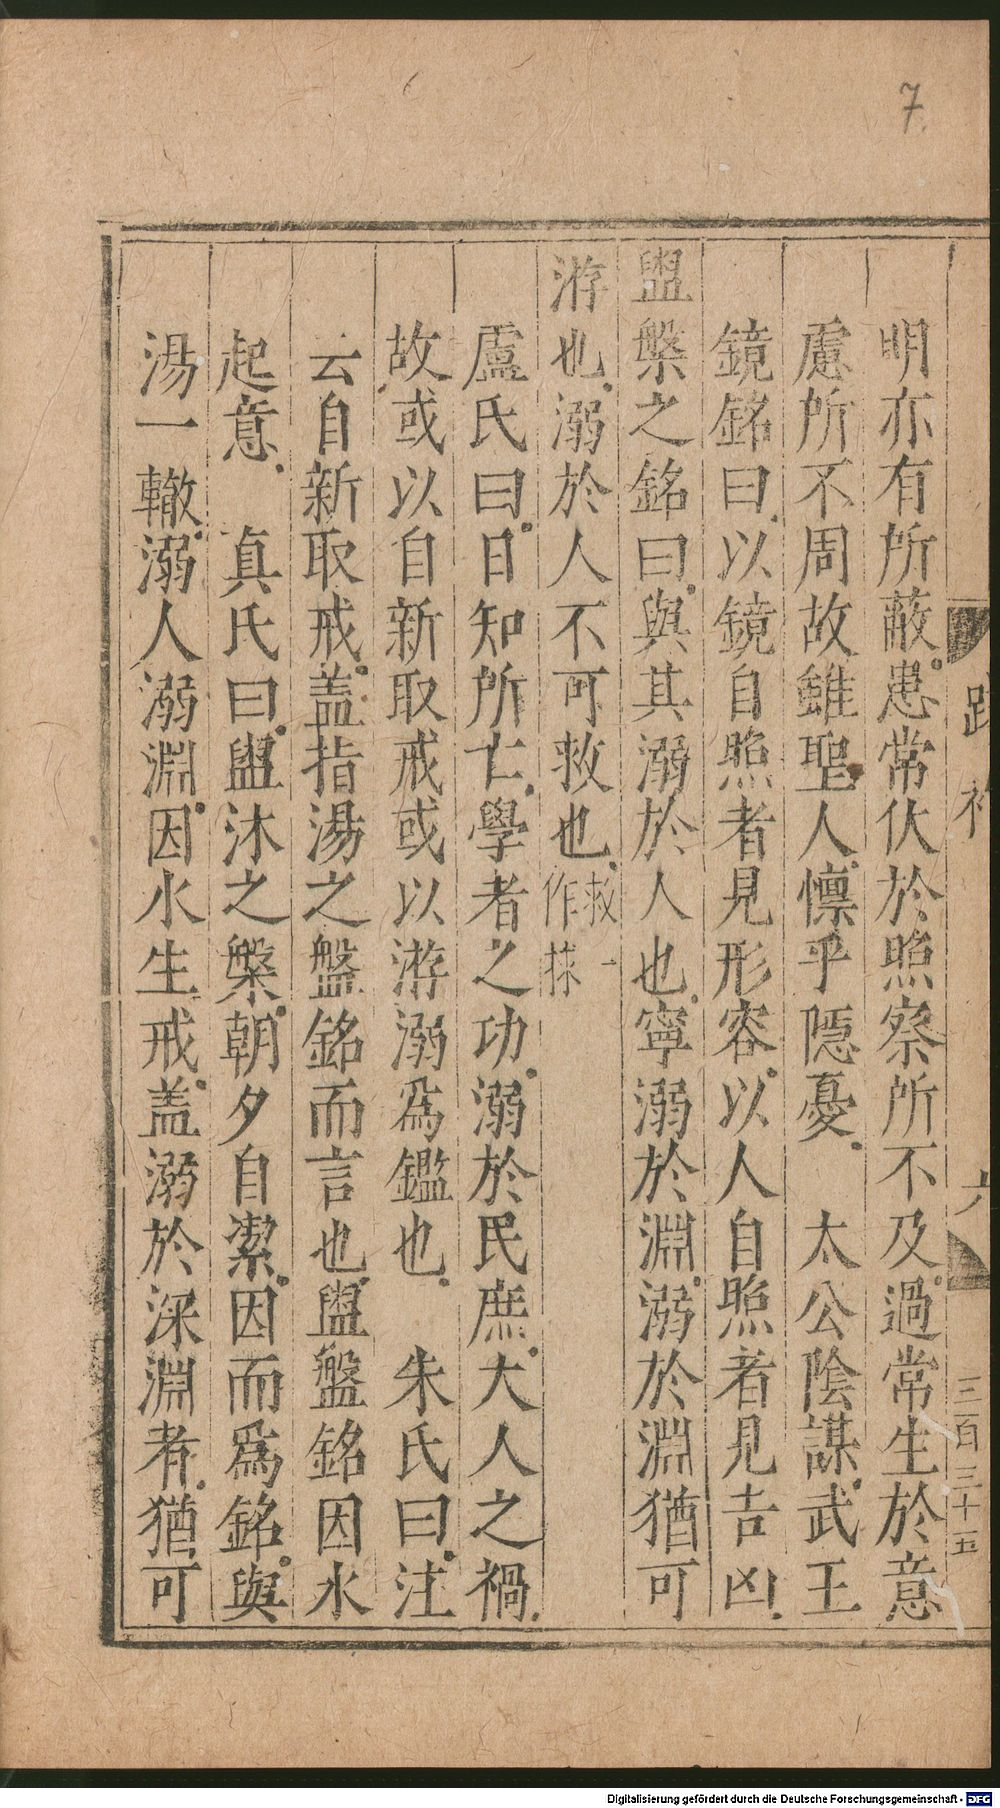 7.
明亦有所蔽患常伏於照察所不及過常生於意
慮所不周故雖聖人懍乎隱憂 太公陰謀武王
鏡銘曰以鏡自照者見形容以人自照者見吉凶
盥槃之銘曰與其溺於人也寧溺於淵溺於淵猶可
游也溺於人不可救也救一作捄
盧氏曰日知所亡學者之功溺於民庶大人之禍
故或以自新取戒或以游溺爲鑑也 朱氏曰注
云自新取戒蓋指湯之盤銘而言也盥盤銘因水
起意 真氏曰盥沐之槃朝夕自潔因而爲銘與
湯一轍溺人溺淵因水生戒蓋溺於深淵者猶可
三百三十五
Digitalisierung gefördert durch die Deutsche Forschungsgemeinschaft - DFG